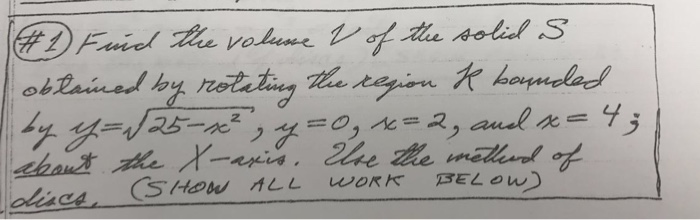 #1 Find the volume V of the solid S
obtained by rotating the region R bounded
by y=√25-x², y=0, x=2, and x=4;
about the X-axis. Use the method of
discs. (SHOW ALL WORK BELOW)